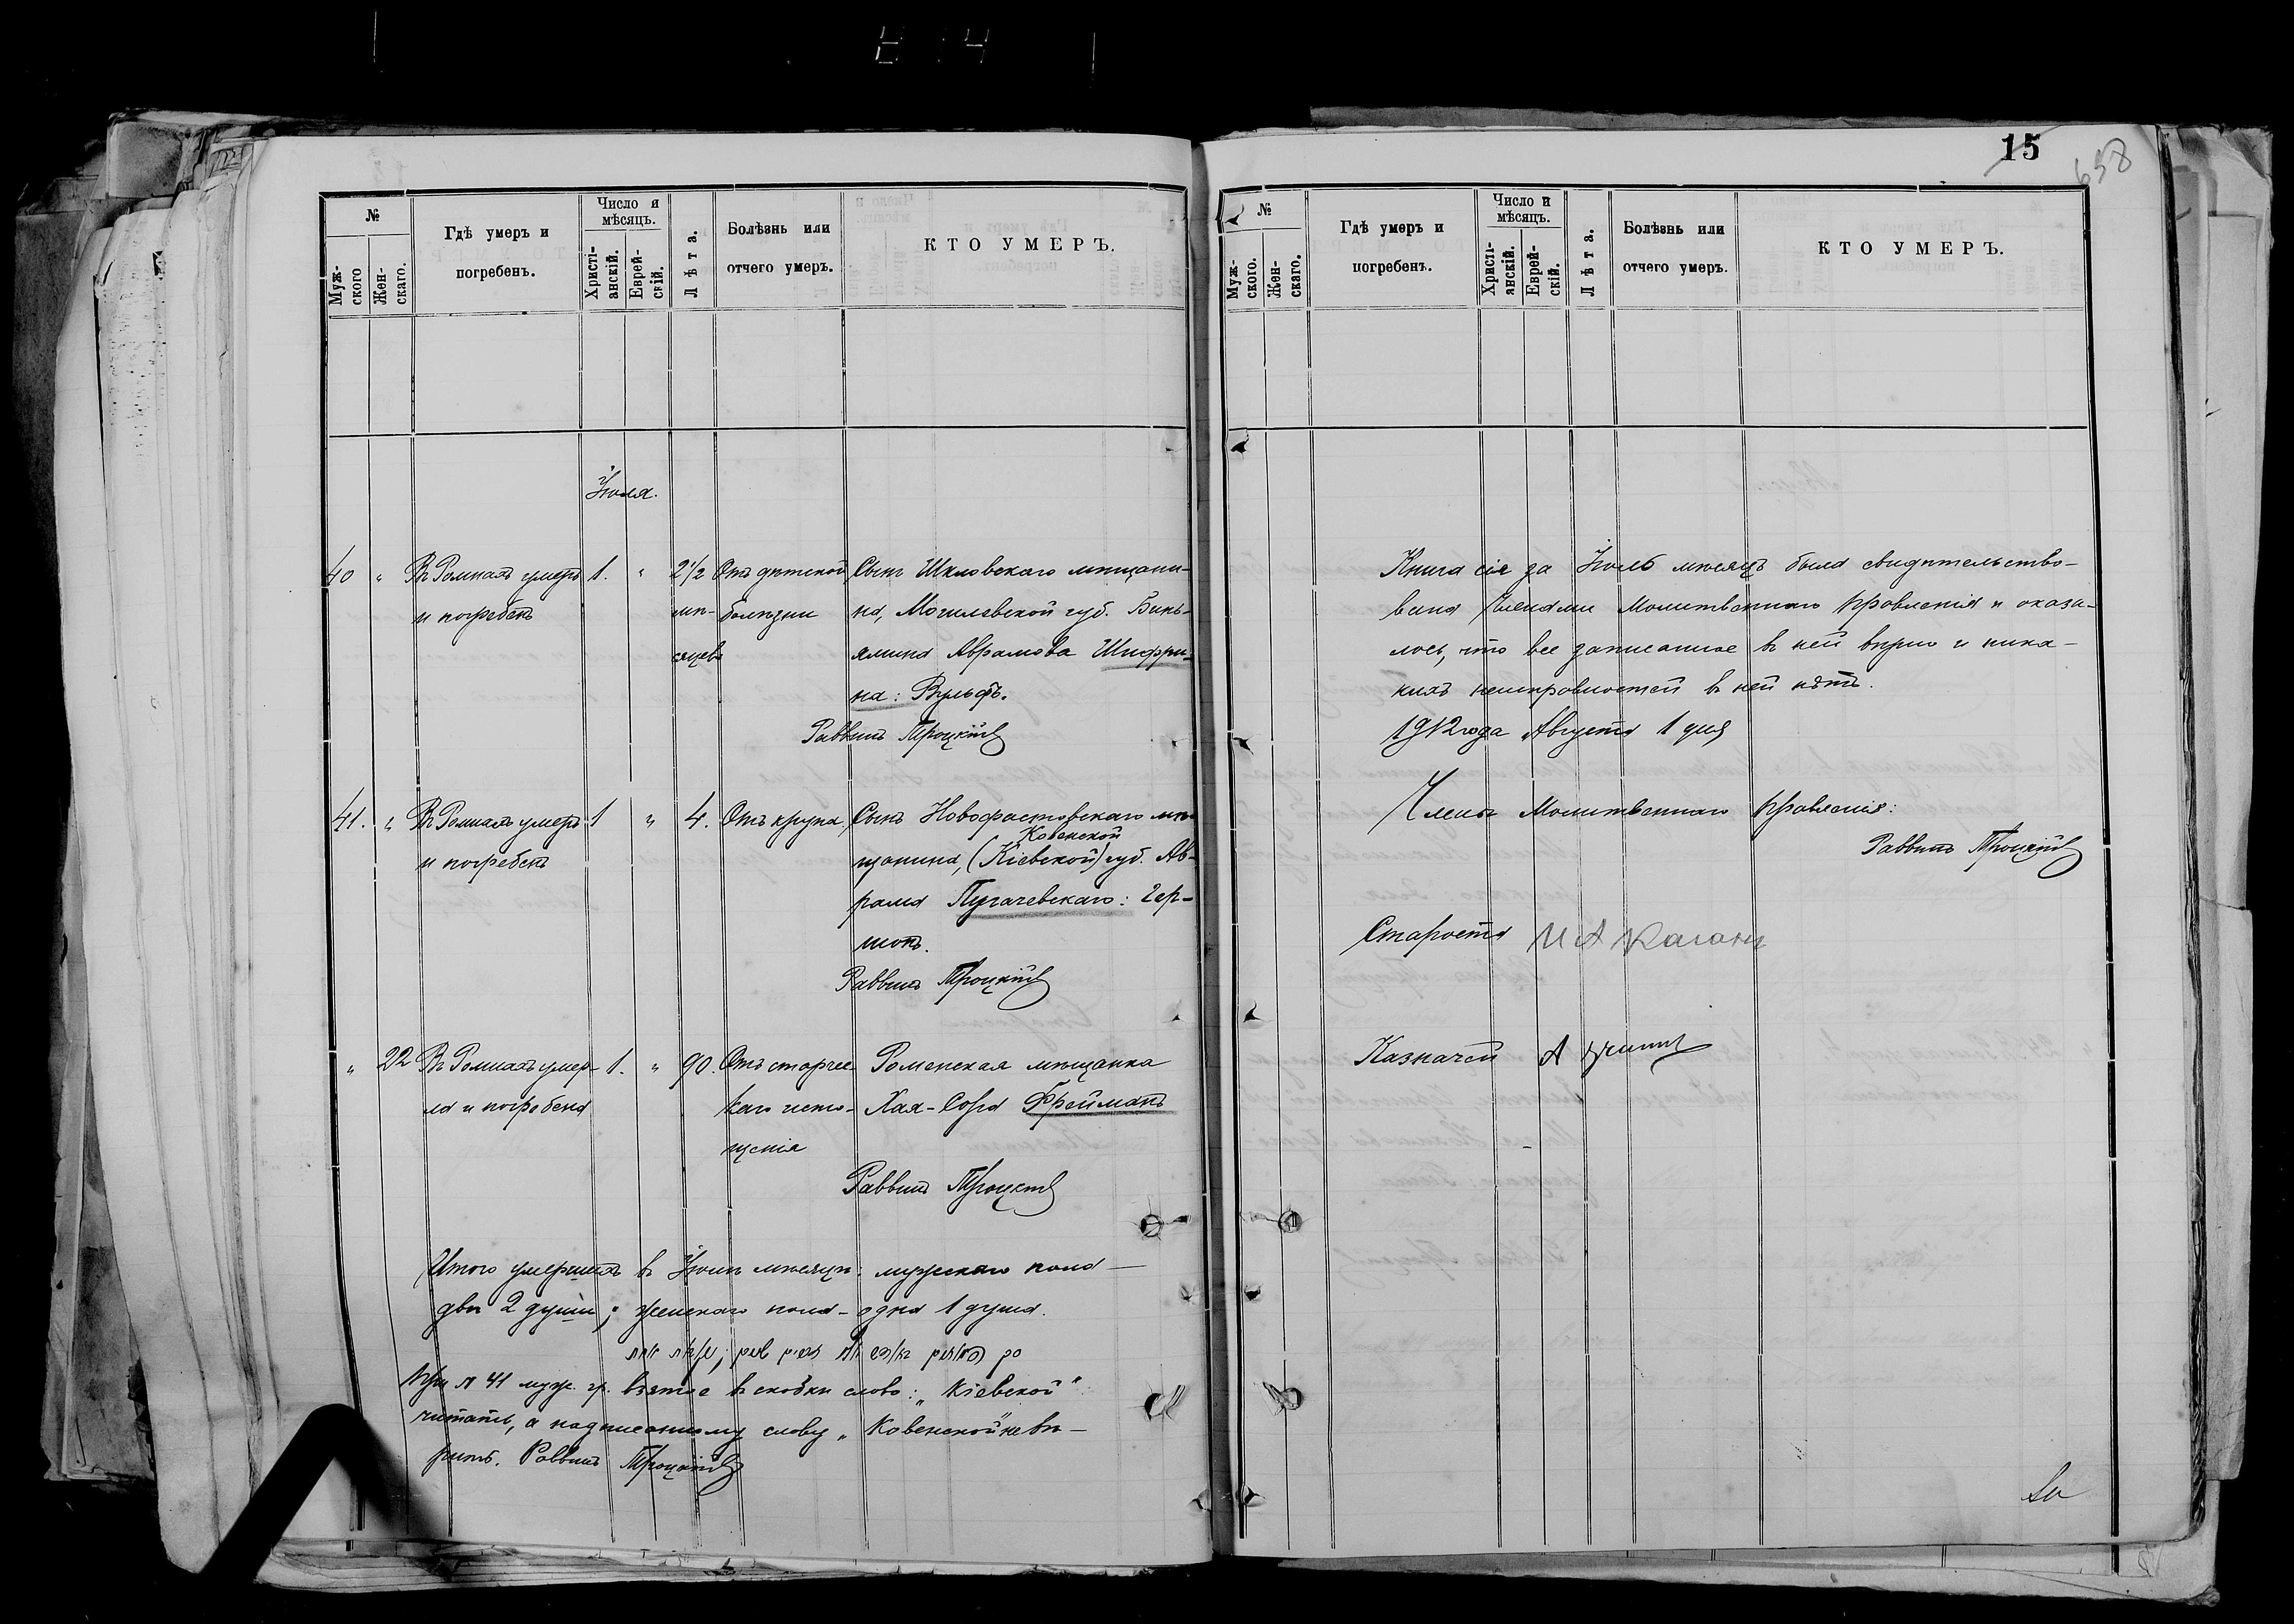 15
658
№
Муж-
ского
Жен-
скаго.
Гдѣ умеръ и
погребенъ.
Число и
мѣсяцъ.
Христі-
анскій.
Еврей-
скій.
Лѣта.
Болѣзнь или
отчего умеръ.
КТО УМЕРЪ.
Іюля.
40 " Въ Ромнахъ умеръ 1. " 2 1/2 Отъ дѣтской Сынъ Шкловскаго мѣщани-
и погребенъ мѣ- болѣзни на, Могилевской губ. Бинь-
сяцевъ ямина Абрамова Шифри-
на: Вульфъ.
Раввинъ Троцкій
41. " Въ Ромнахъ умеръ 1 " 4. Отъ крупа. Сынъ Новофастовскаго мѣ-
Ковенской
и погребенъ щанина, (Кіевской) губ. Аб-
рама Пугачевскаго: Гер-
шонъ.
Раввинъ Троцкій
" 22 Въ Ромнахъ умер- 1. " 90. Отъ старчес- Роменская мѣщанка
ла и погребена каго исто- Хая-Сора Фрейманъ
щенія
Раввинъ Троцкій
Итого умершихъ въ Іюлѣ мѣсяцѣ: мужскаго пола —
двѣ 2 души; женскаго пола - одна 1 душа.
При № 41 муж. гр. взятое въ скобки слово: „Кіевской"
читать, а надписанному слову „Ковенской" не вѣ-
рить. Раввинъ Троцкій
№
Муж-
ского.
Жен-
скаго.
Гдѣ умеръ и
погребенъ.
Число и
мѣсяцъ.
Христі-
анскій.
Еврей-
скій.
Лѣта.
Болѣзнь или
отчего умеръ.
КТО УМЕРЪ.
Книга сія за Іюль мѣсяцъ была свидѣтельство-
вана Членами Молитвеннаго Правленія и оказа-
лось, что все записанное въ ней вѣрно и ника-
кихъ неисправностей въ ней нѣтъ.
1912 года Августа 1 дня
Члены Молитвеннаго Правленія:
Раввинъ Троцкій
Староста И А Каганъ
Казначей А